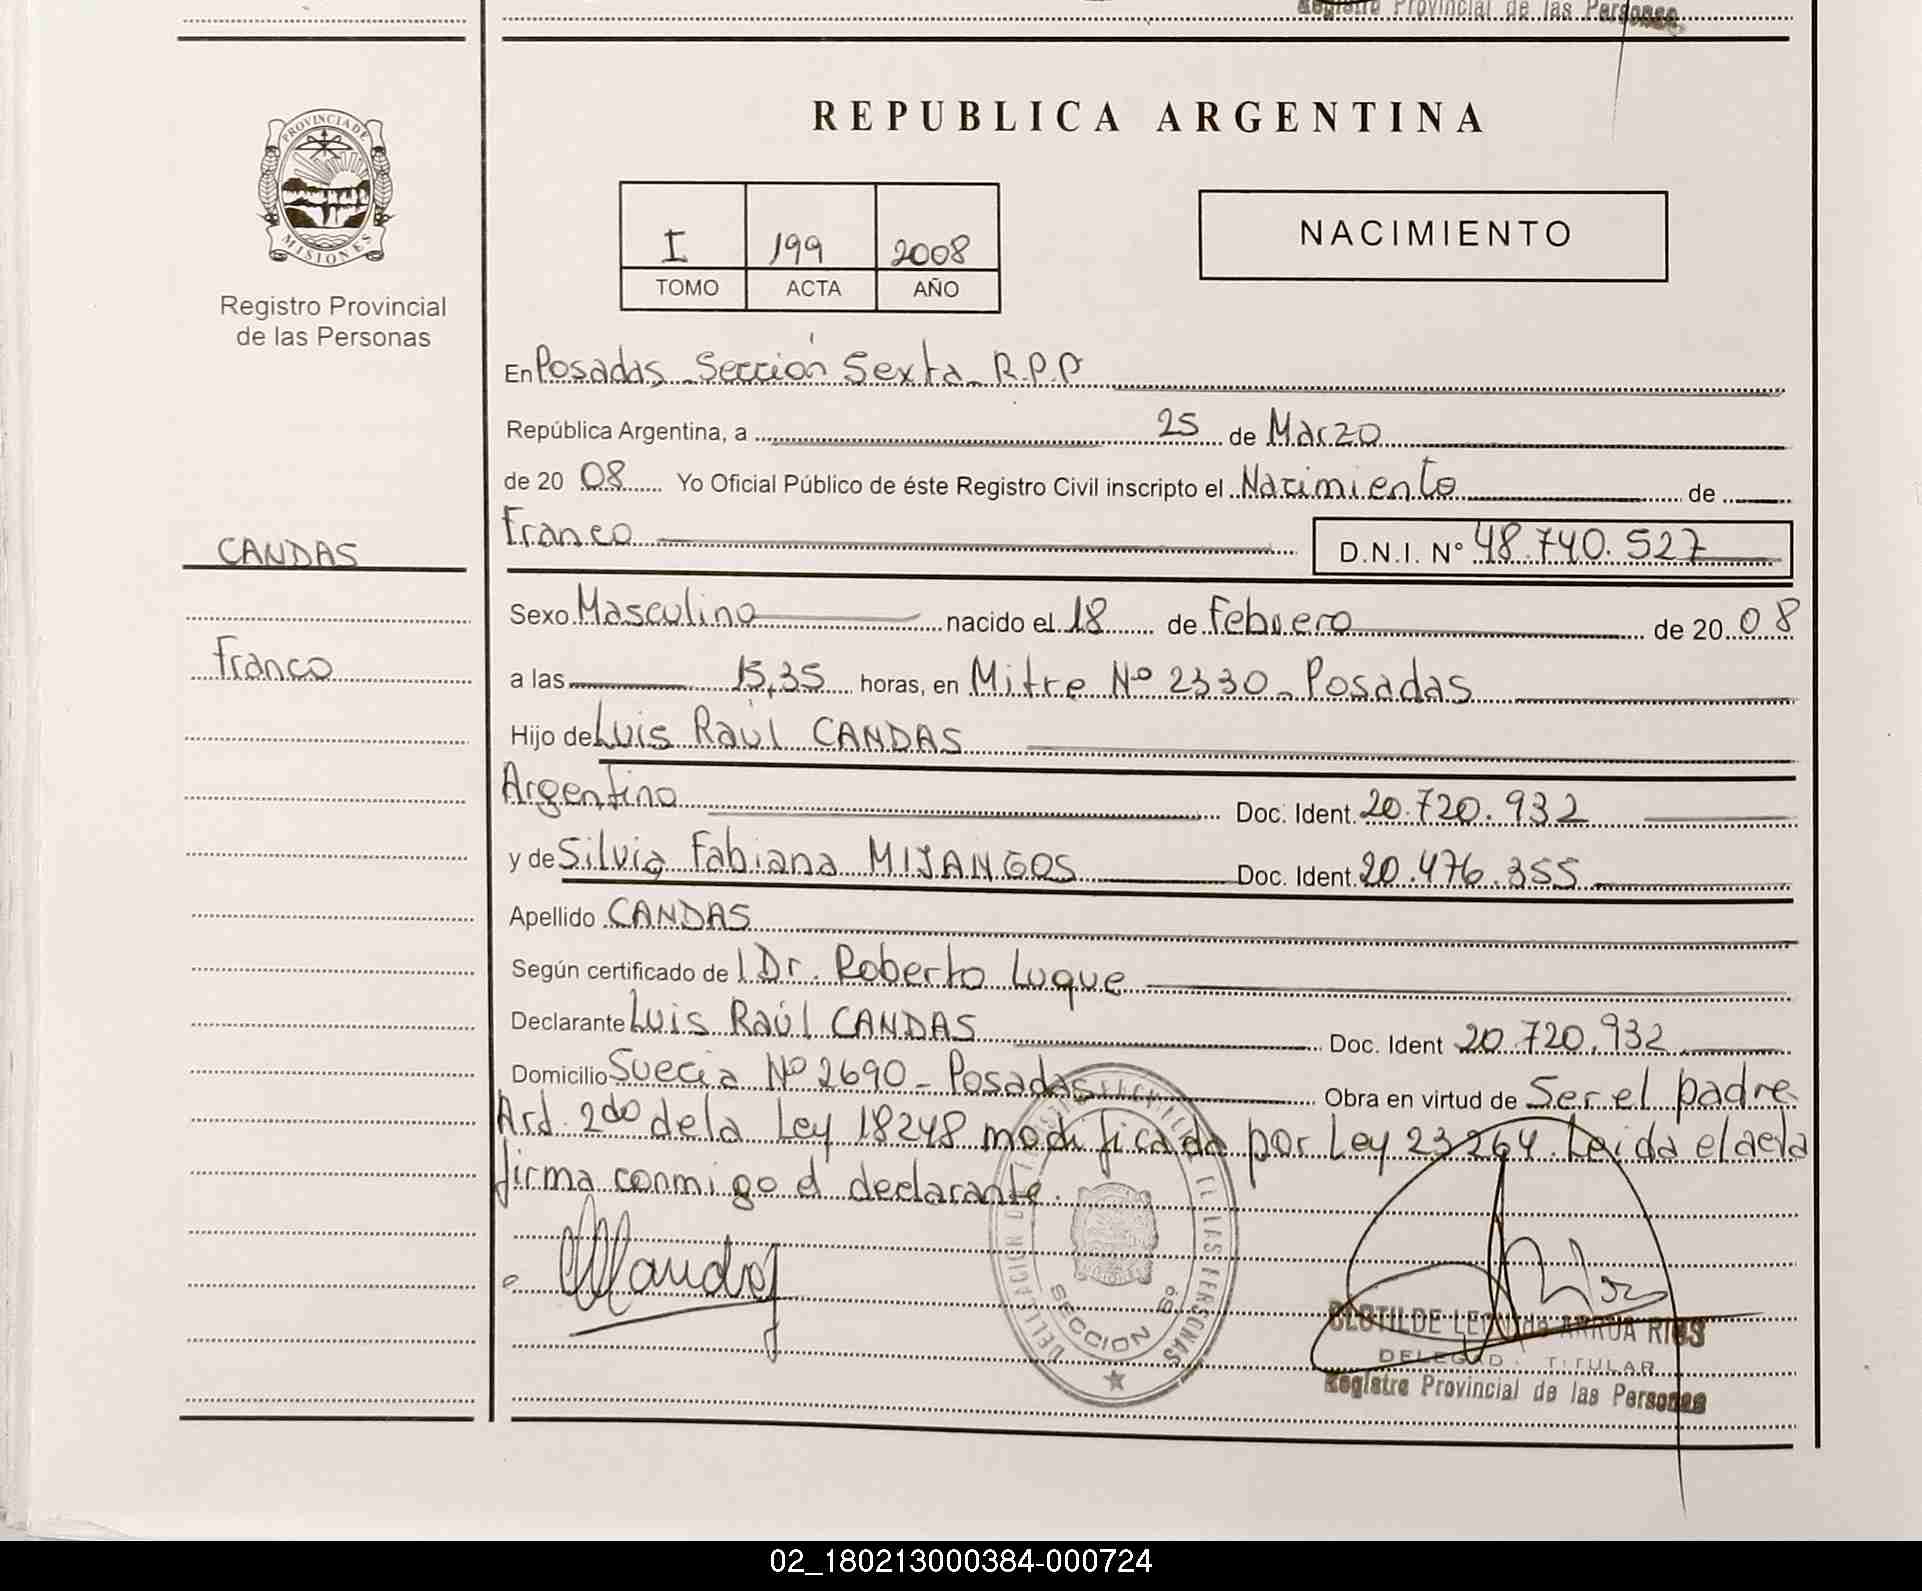 Registro Provincial de las Personas
PROVINCIA DE
MISIONES
Registro Provincial
de las Personas
CANDAS
Franco
REPUBLICA ARGENTINA
I 199 2008
TOMO ACTA AÑO
NACIMIENTO
En Posadas Sección Sexta R.P.P
República Argentina, a 25 de Marzo
de 20 08 Yo Oficial Público de éste Registro Civil inscripto el Nacimiento de
Franco D.N.I. N° 48.740.527
Sexo Masculino nacido el 18 de Febrero de 20 08
a las 15,35 horas, en Mitre Nº 2330 - Posadas
Hijo de Luis Raúl CANDAS
Argentino Doc. Ident. 20.720.932
y de Silvia Fabiana MIJANGOS Doc. Ident. 20.476.355
Apellido CANDAS
Según certificado de l Dr. Roberto Luque
Declarante Luis Raúl CANDAS Doc. Ident 20.720.932
Domicilio Suecia Nº 2690 - Posadas Obra en virtud de Ser el padre
Art. 2do de la Ley 18248 modificada por Ley 23264. Leida el acta
firma conmigo el declarante.
DE LAS PERSONAS
SECCION 6º
CLOTILDE ARRUA RIOS
TITULAR
Registro Provincial de las Personas
02_180213000384-000724